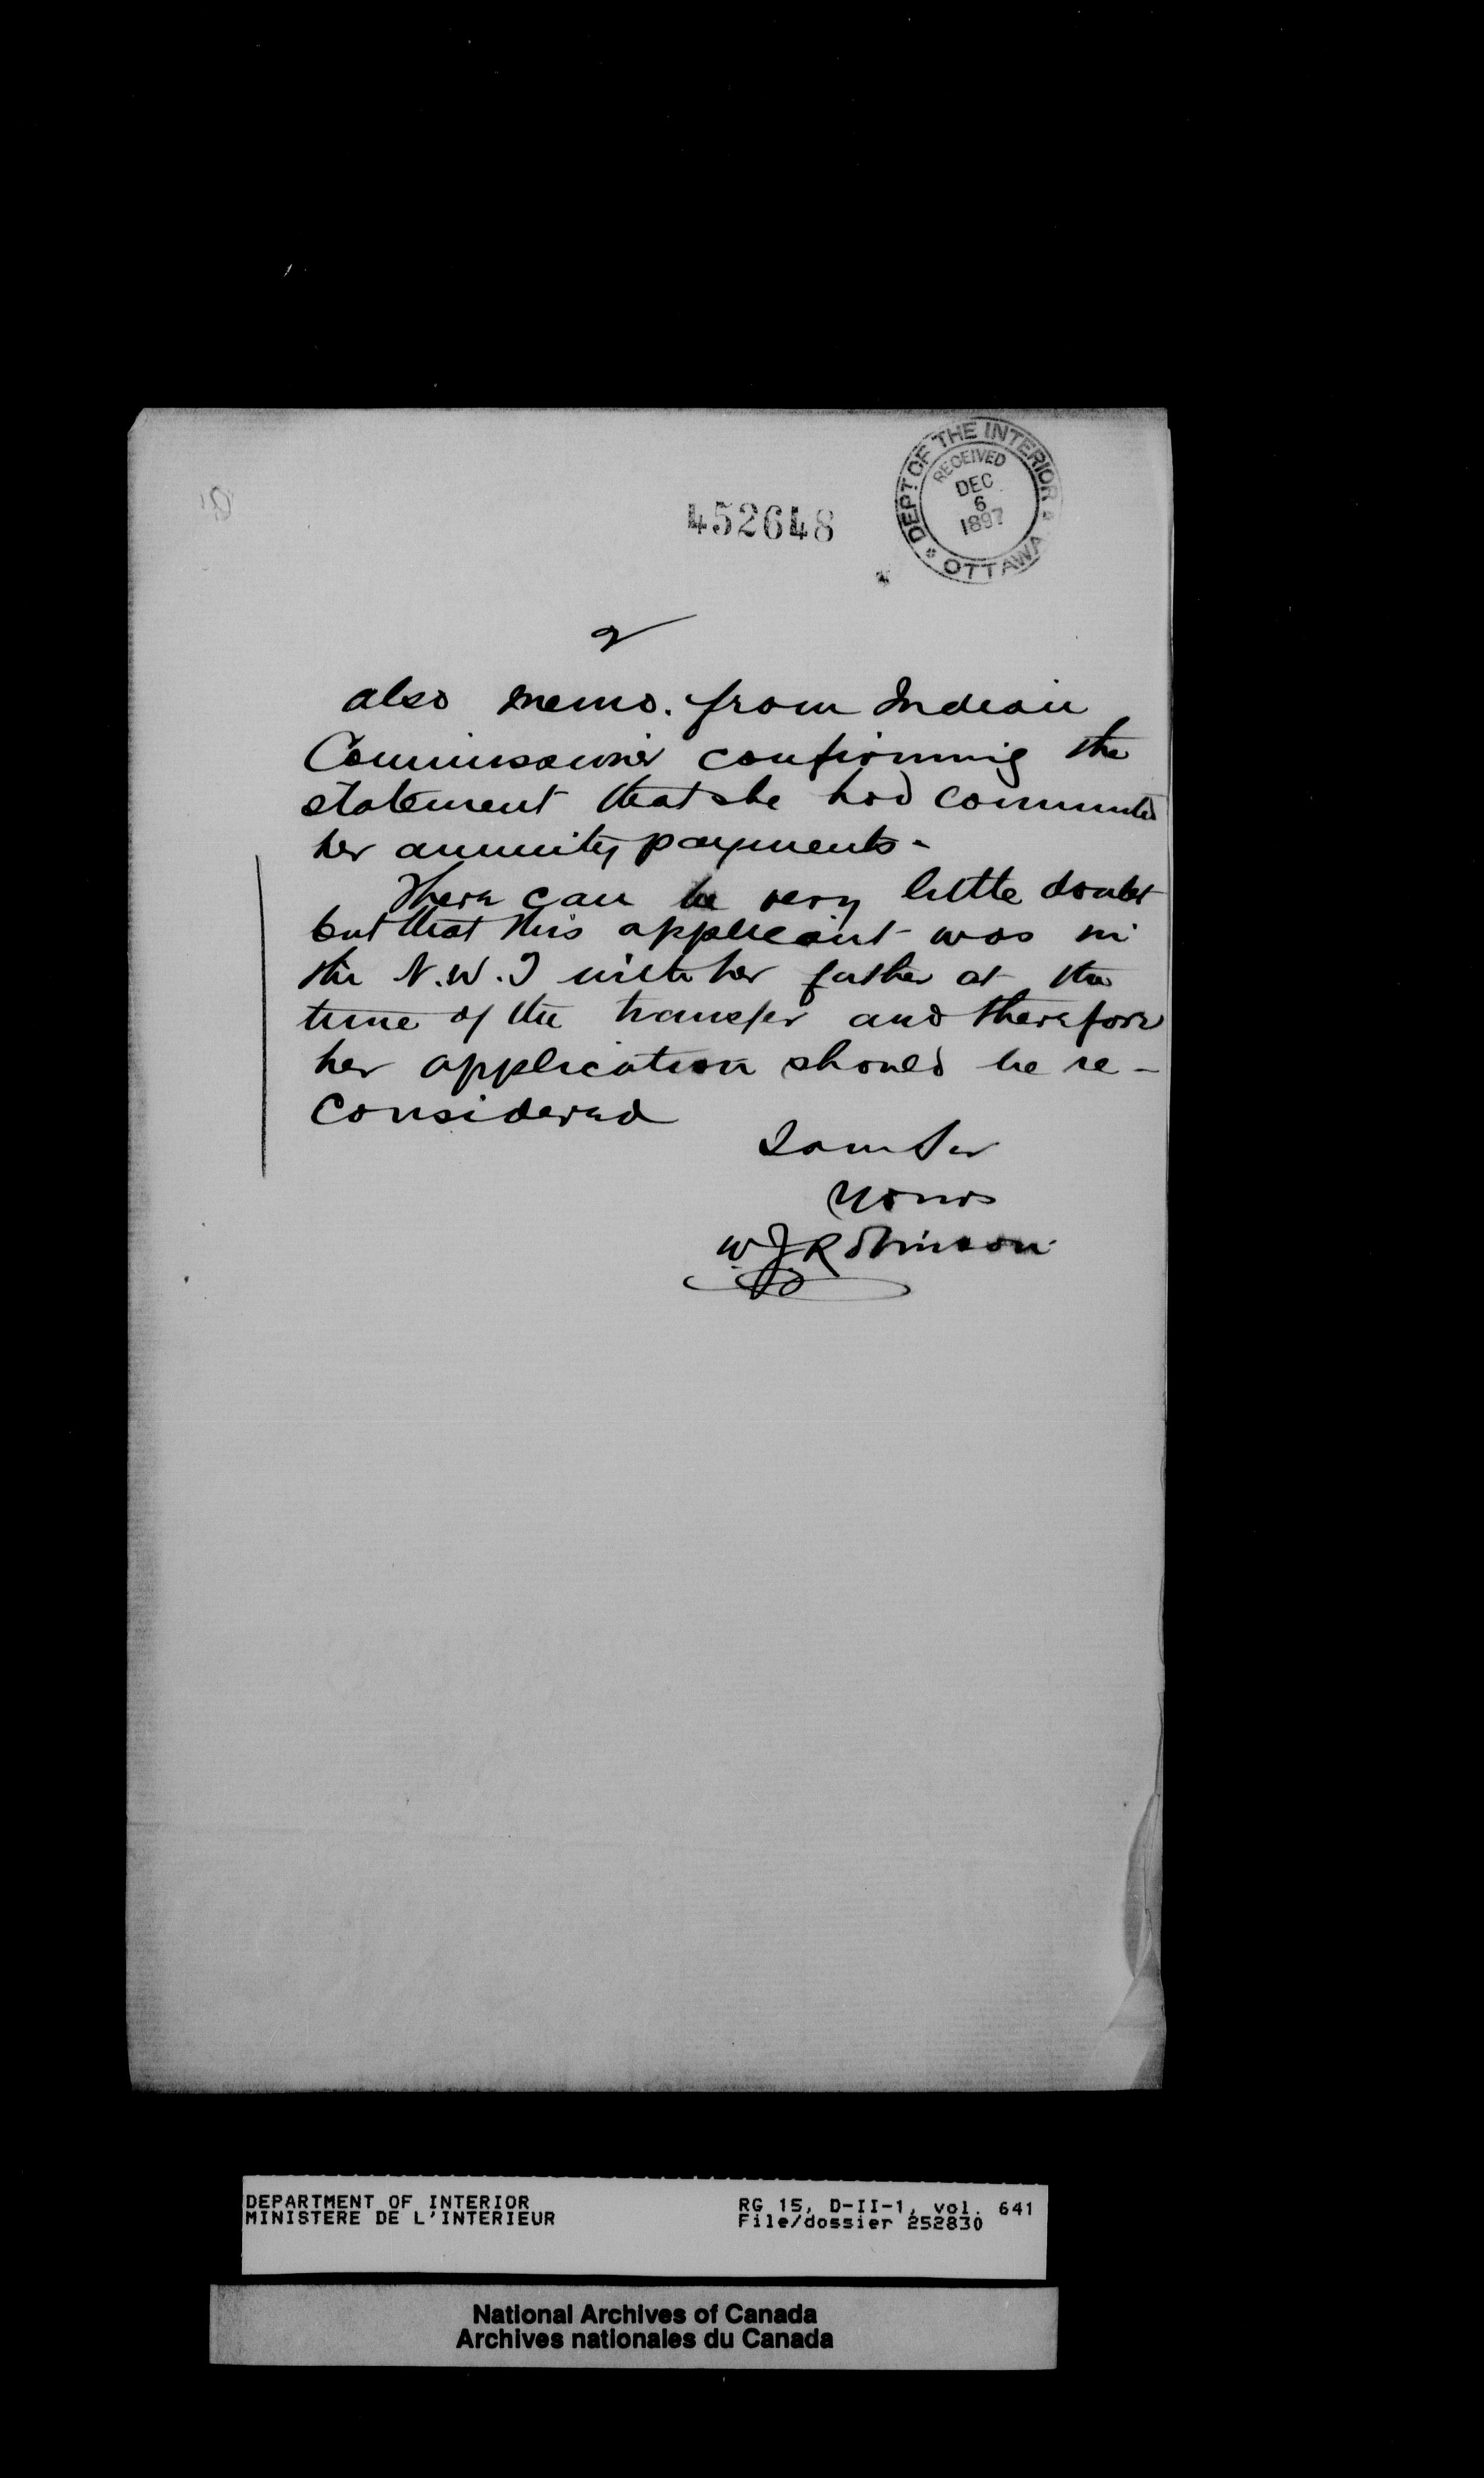 452648
DEPT OF THE INTERIOR
RECEIVED
DEC
6
1897
OTTAWA
2
also memo. from Indian
Commissioner confirming the
statement that she had commuted
her annuity payments-
There can be very little doubt
but that this applicant was in
the N.W.T with her father at the
time of the transfer and therefore
her application should be re-
considered
I am Sir
Yours
W J Robinson
DEPARTMENT OF INTERIOR
MINISTERE DE L'INTERIEUR
RG 15, D-II-1, vol. 641
File/dossier 252830
National Archives of Canada
Archives nationales du Canada